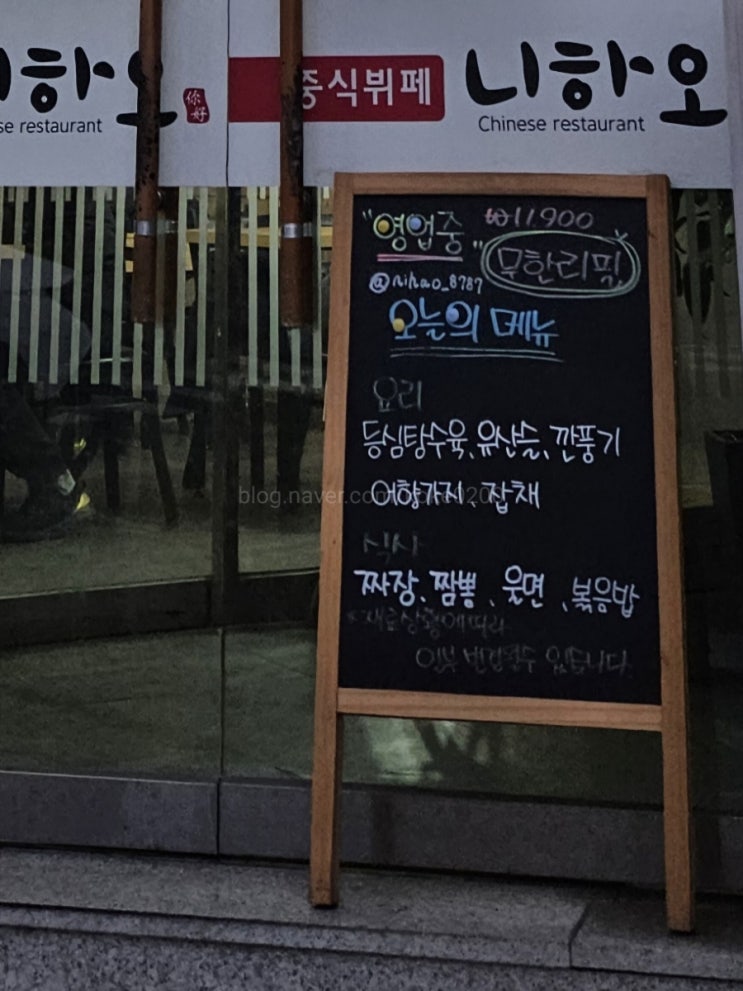 니하오
se restaurant
你好
중식뷔페
니하오
Chinese restaurant
"영업중"
₩11900
무한리필
@nihao_8787
오늘의 메뉴
요리
등심탕수육, 유산슬, 깐풍기
어향가지, 잡채
식사
짜장, 짬뽕, 울면, 볶음밥
*재료상황에따라
일부 변경될수 있습니다.
blog.naver.com